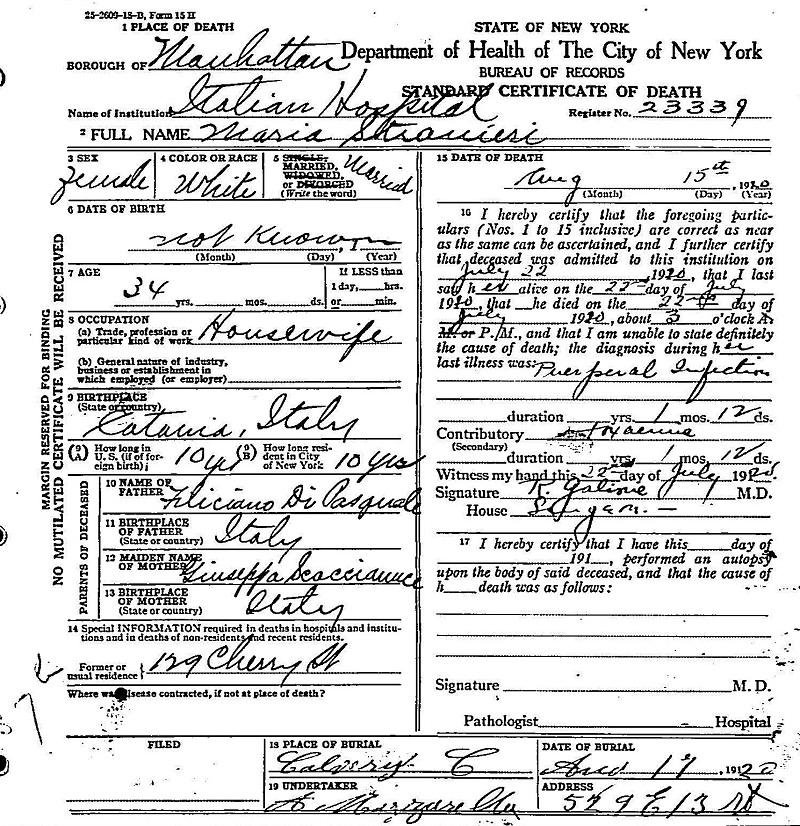 25-2609-18-B, Form 15 H
1 PLACE OF DEATH
BOROUGH OF Manhattan
STATE OF NEW YORK
Department of Health of The City of New York
BUREAU OF RECORDS
STANDARD CERTIFICATE OF DEATH
Name of Institution Italian Hospital
Register No. 23339
2 FULL NAME Maria Stranieri
MARGIN RESERVED FOR BINDING
NO MUTILATED CERTIFICATE WILL BE RECEIVED
3 SEX
Female
4 COLOR OR RACE
White
5 SINGLE,
MARRIED,
WIDOWED,
or DIVORCED
(Write the word)
Married
6 DATE OF BIRTH
not Known
(Month) (Day) (Year)
7 AGE
34 yrs. mos. ds.
If LESS than
1 day, hrs.
or min.
8 OCCUPATION
(a) Trade, profession or
particular kind of work Housewife
(b) General nature of industry,
business or establishment in
which employed (or employer)
9 BIRTHPLACE
(State or country)
Catania, Italy
(9A) How long in
U. S. (if of for-
eign birth) 10 yrs
(9B) How long resi-
dent in City
of New York 10 yrs
PARENTS OF DECEASED
10 NAME OF
FATHER Filiciano Di Pasquale
11 BIRTHPLACE
OF FATHER
(State or country) Italy
12 MAIDEN NAME
OF MOTHER Giuseppa
13 BIRTHPLACE
OF MOTHER
(State or country) Italy
14 Special INFORMATION required in deaths in hospitals and institu-
tions and in deaths of non-residents and recent residents.
Former or
usual residence 129 Cherry St
Where was disease contracted, if not at place of death?
15 DATE OF DEATH
Aug 15th, 1920
(Month) (Day) (Year)
16 I hereby certify that the foregoing partic-
ulars (Nos. 1 to 15 inclusive) are correct as near
as the same can be ascertained, and I further certify
that deceased was admitted to this institution on
July 22, 1920, that I last
saw her alive on the 22 day of July
1920, that he died on the 22 day of
July 1920, about 3 o'clock A.
M. or P. M., and that I am unable to state definitely
the cause of death; the diagnosis during her
last illness was: Puerperal Infection
duration yrs. 1 mos. 12 ds.
Contributory Toxaemia
(Secondary)
duration yrs. 1 mos. 12 ds.
Witness my hand this 22 day of July 1920
Signature M.D.
House Surgeon
17 I hereby certify that I have this day of
191, performed an autopsy
upon the body of said deceased, and that the cause of
h death was as follows:
Signature M. D.
Pathologist Hospital
FILED
18 PLACE OF BURIAL
Calvary C
DATE OF BURIAL
Aug 17, 1920
19 UNDERTAKER
ADDRESS
529 E 13 St